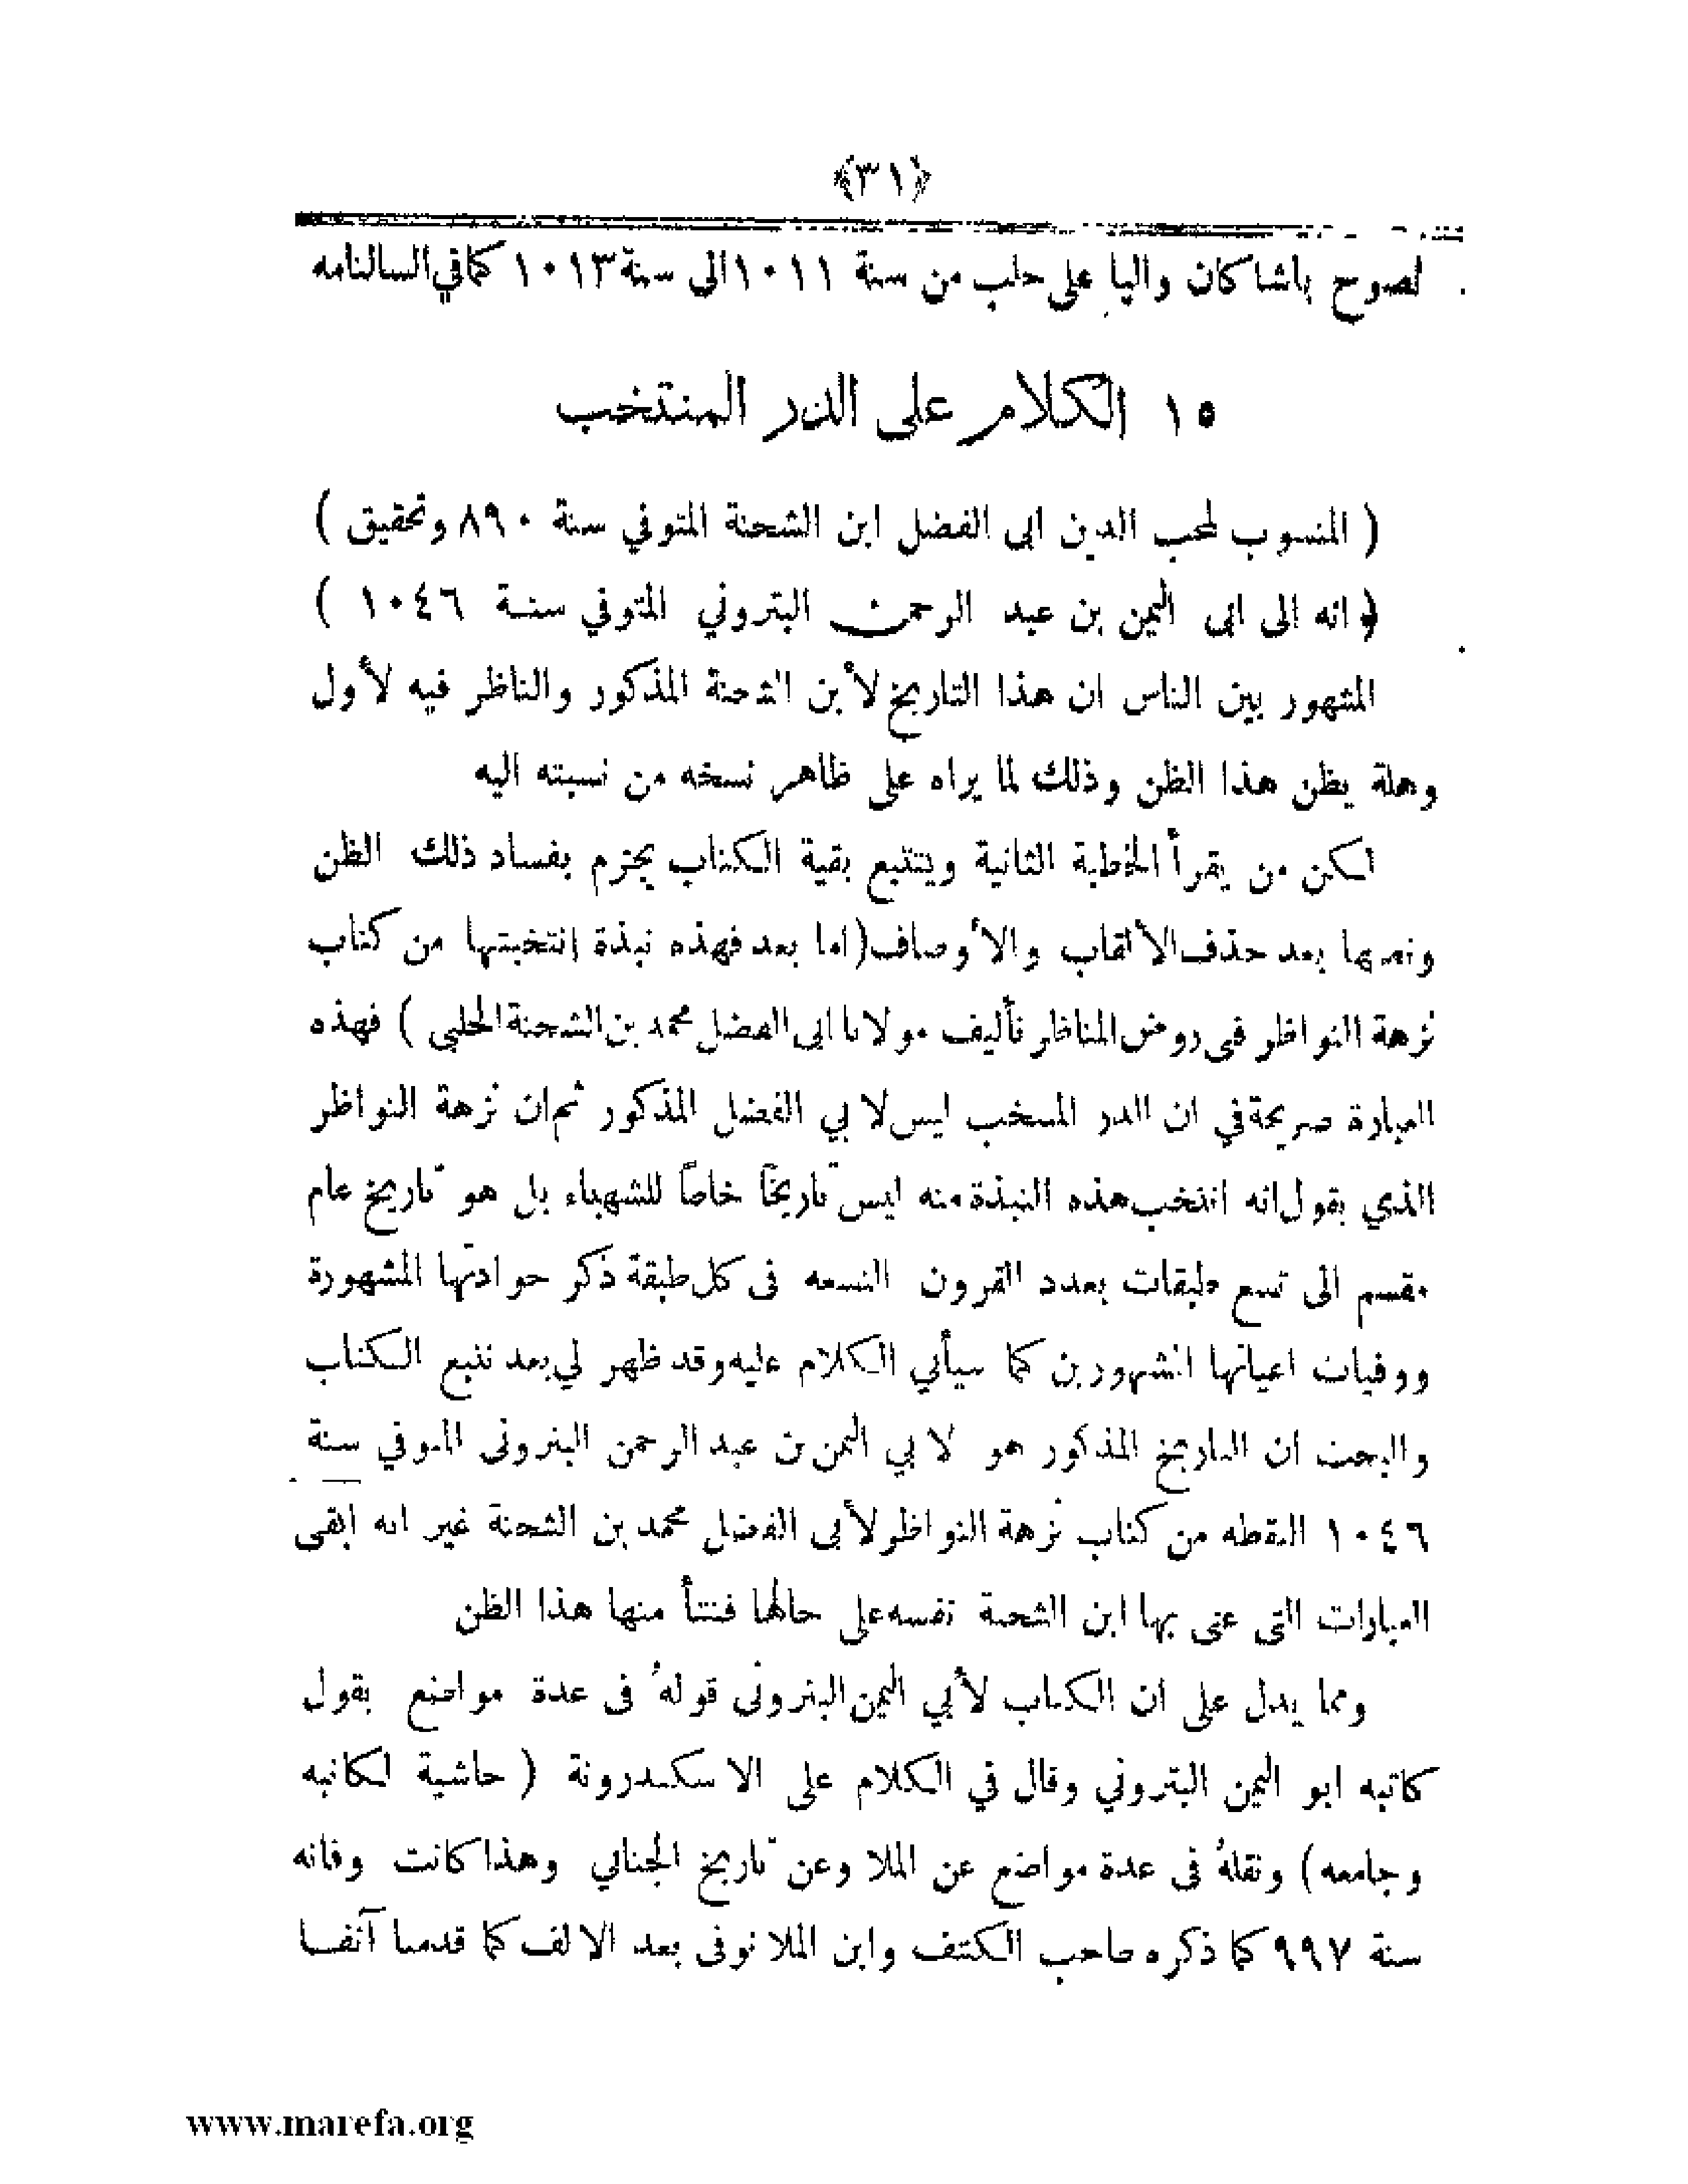 ﴿٣١﴾
نصوح باشا كان واليا على حلب من سنة ١٠١١ الى سنة ١٠١٣ كما في السالنامه
١٥ الكلام على الدر المنتخب
( المنسوب لمحب الدين ابى الفضل ابن الشحنة المتوفي سنة ٨٩٠ وتحقيق )
( انه الى ابى اليمن بن عبد الرحمن البتروني المتوفي سنة ١٠٤٦ )
المشهور بين الناس ان هذا التاريخ لأبن الشحنة المذكور والناظر فيه لأول
وهلة يظن هذا الظن وذلك لما يراه على ظاهر نسخه من نسبته اليه
لكن من يقرأ الخطبة الثانية ويتتبع بقية الكتاب يجزم بفساد ذلك الظن
ونصها بعد حذف الألقاب والأوصاف (اما بعد فهذه نبذة إنتخبتها من كتاب
نزهة النواظر فى روض المناظر تأليف مولانا ابى الفضل محمد بن الشحنة الحلبي ) فهذه
العبارة صريحة في ان الدر المنتخب ليس لابي الفضل المذكور ثم ان نزهة النواظر
الذي يقول انه انتخب هذه النبذة منه ليس تاريخاً خاصاً للشهباء بل هو تاريخ عام
مقسم الى تسع طبقات بعدد القرون التسعه فى كل طبقة ذكر حوادثها المشهورة
ووفيات اعيانها المشهورين كما سيأتي الكلام عليه وقد ظهر لي بعد تتبع الكتاب
والبحث ان التاريخ المذكور هو لابي اليمن بن عبد الرحمن البترونى المتوفي سنة
١٠٤٦ التقطه من كتاب نزهة النواظر لأبى الفضل محمد بن الشحنة غير انه ابقى
العبارات التى عنى بها ابن الشحنة نفسه على حالها فنشأ منها هذا الظن
ومما يدل على ان الكتاب لأبي اليمن البترونى قولهُ فى عدة مواضع يقول
كاتبه ابو اليمن البتروني وقال في الكلام على الاسكندرونة ( حاشية لكاتبه
وجامعه) ونقلهُ فى عدة مواضع عن الملا وعن تاريخ الجنابي وهذا كانت وفاته
سنة ٩٩٧ كما ذكره صاحب الكشف وابن الملا توفى بعد الالف كما قدمنا آنفا
www.marefa.org